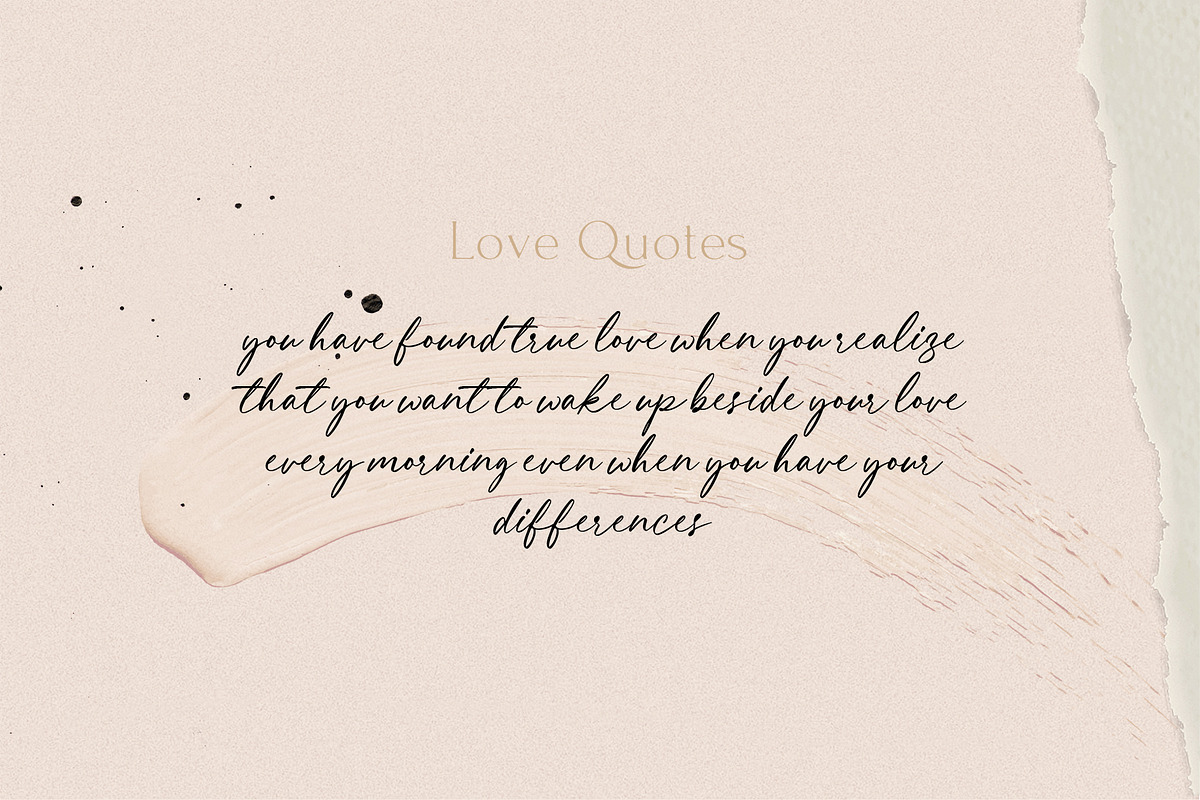 Love Quotes
you have found true love when you realize
that you want to wake up beside your love
every morning even when you have your
differences